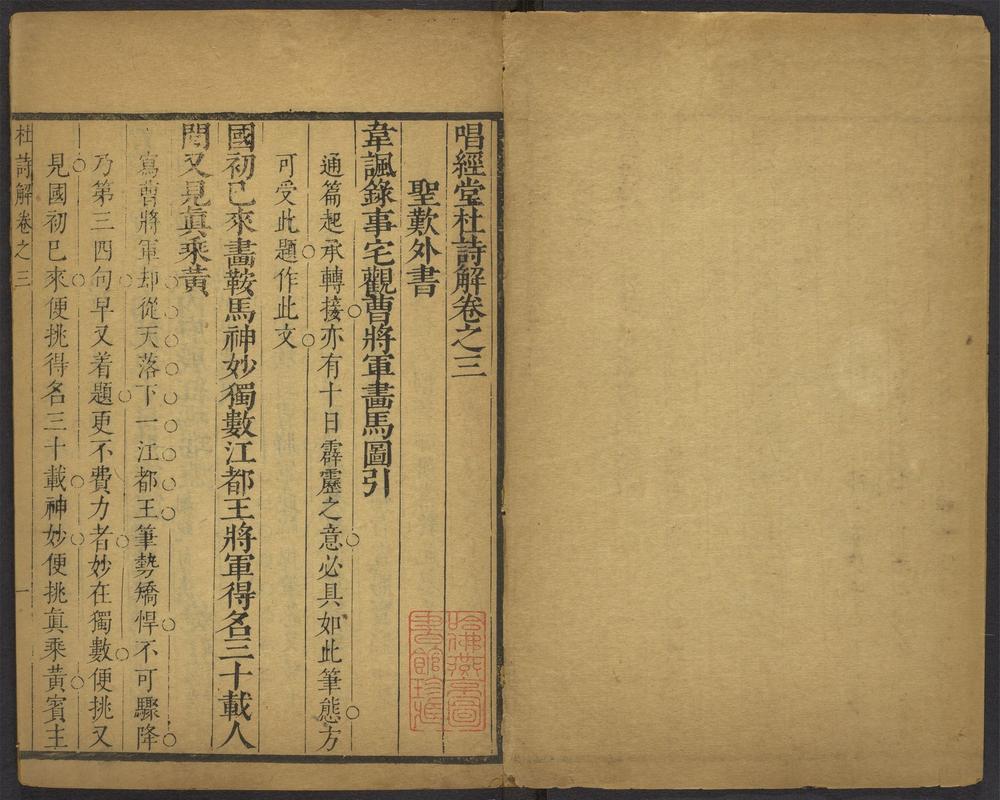 唱經堂杜詩解卷之三
聖歎外書
韋諷錄事宅觀曹將軍畫馬圖引
通篇起承轉接亦有十日霹靂之意必具如此筆態方
可受此題作此文
國初已來畫鞍馬神妙獨數江都王將軍得名三十載人
間又見眞乘黃
寫曹將軍却從天落下一江都王筆勢矯悍不可驟降
乃第三四句早又着題更不費力者妙在獨數便挑又
見國初已來便挑得名三十載神妙便挑眞乘黃賓主
杜詩解卷之三 一
哈佛燕京圖書館珍藏